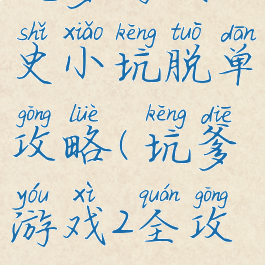 shǐ xiǎo kēng tuō dān
史小坑脱单
gōng lüè kēng diē
攻略(坑爹
yóu xì quán gōng
游戏2全攻